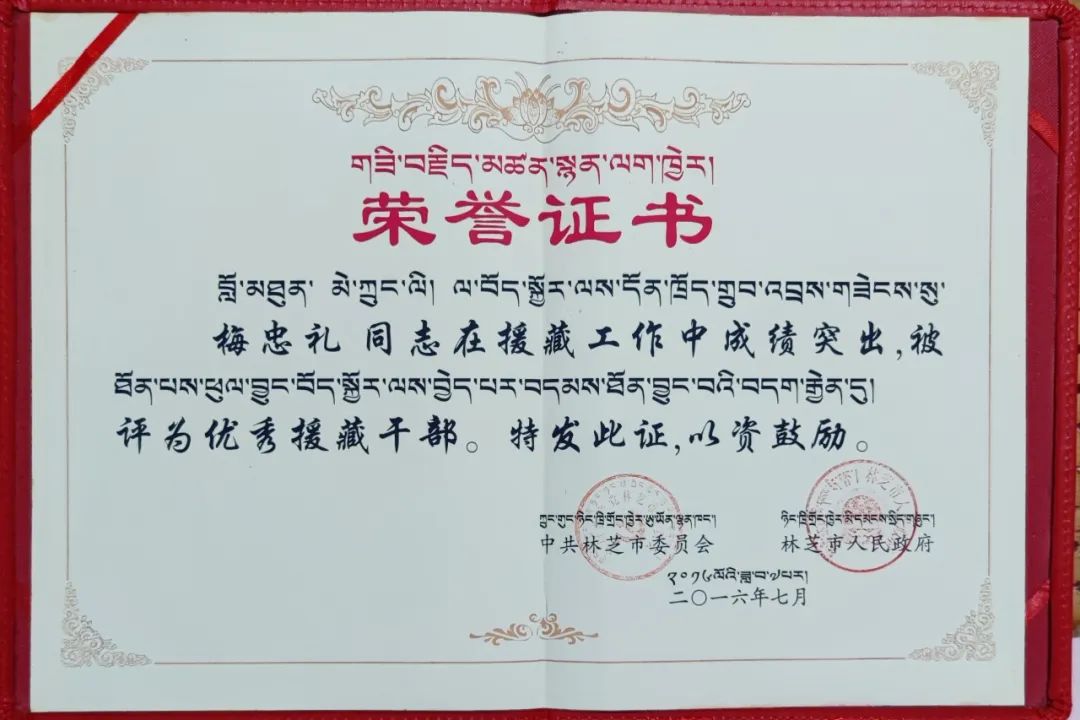 གཟི་བརྗིད་མཚན་སྙན་ལག་ཁྱེར།
荣誉证书
བློ་མཐུན་ མེ་ཀྲུང་ལི། ལ་བོད་སྐྱོར་ལས་དོན་ཁྲོད་གྲུབ་འབྲས་གཟེངས་སུ་
梅忠礼 同志在援藏工作中成绩突出,被
ཐོན་པས་ཕུལ་བྱུང་བོད་སྐྱོར་ལས་བྱེད་པར་བདམས་ཐོན་བྱུང་བའི་བདག་རྐྱེན་དུ།
评为优秀援藏干部。特发此证,以资鼓励。
ཀྲུང་གུང་ཉིང་ཁྲི་གྲོང་ཁྱེར་ཨུ་ཡོན་ལྷན་ཁང་། ཉིང་ཁྲི་གྲོང་ཁྱེར་མི་དམངས་སྲིད་གཞུང་།
中共林芝市委员会 林芝市人民政府
༢༠༡༦ལོའི་ཟླ་བ་༧པར།
二〇一六年七月